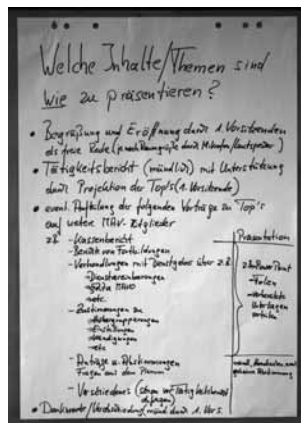 Welche Inhalte/Themen sind
Wie zu präsentieren?
• Begrüßung und Eröffnung durch 1. Vorsitzenden
als freie Rede (je nach Raumgröße durch Mikrofon/Lautsprecher)
• Tätigkeitsbericht (mündlich) mit Unterstützung
durch Projektion der Top's (1. Vorsitzende)
• eventl. Aufteilung der folgenden Vorträge zu Top's
auf weitere MAV-Mitglieder
z.B. - Kassenbericht
- Berichte von Fortbildungen
- Verhandlungen mit Dienstgeber über z.B.
- Dienstvereinbarungen
- etc.
- Zustimmungen zu
- Eingruppierungen
- Einstellungen
- Kündigungen
- etc
- Anträge u. Abstimmungen
Fragen aus dem Plenum
- Verschiedenes
• Dankworte/Verabschiedung mündl. durch 1. Vors.
Präsentation
z.B. Power Point
- Folien
- vorbereitete
Unterlagen